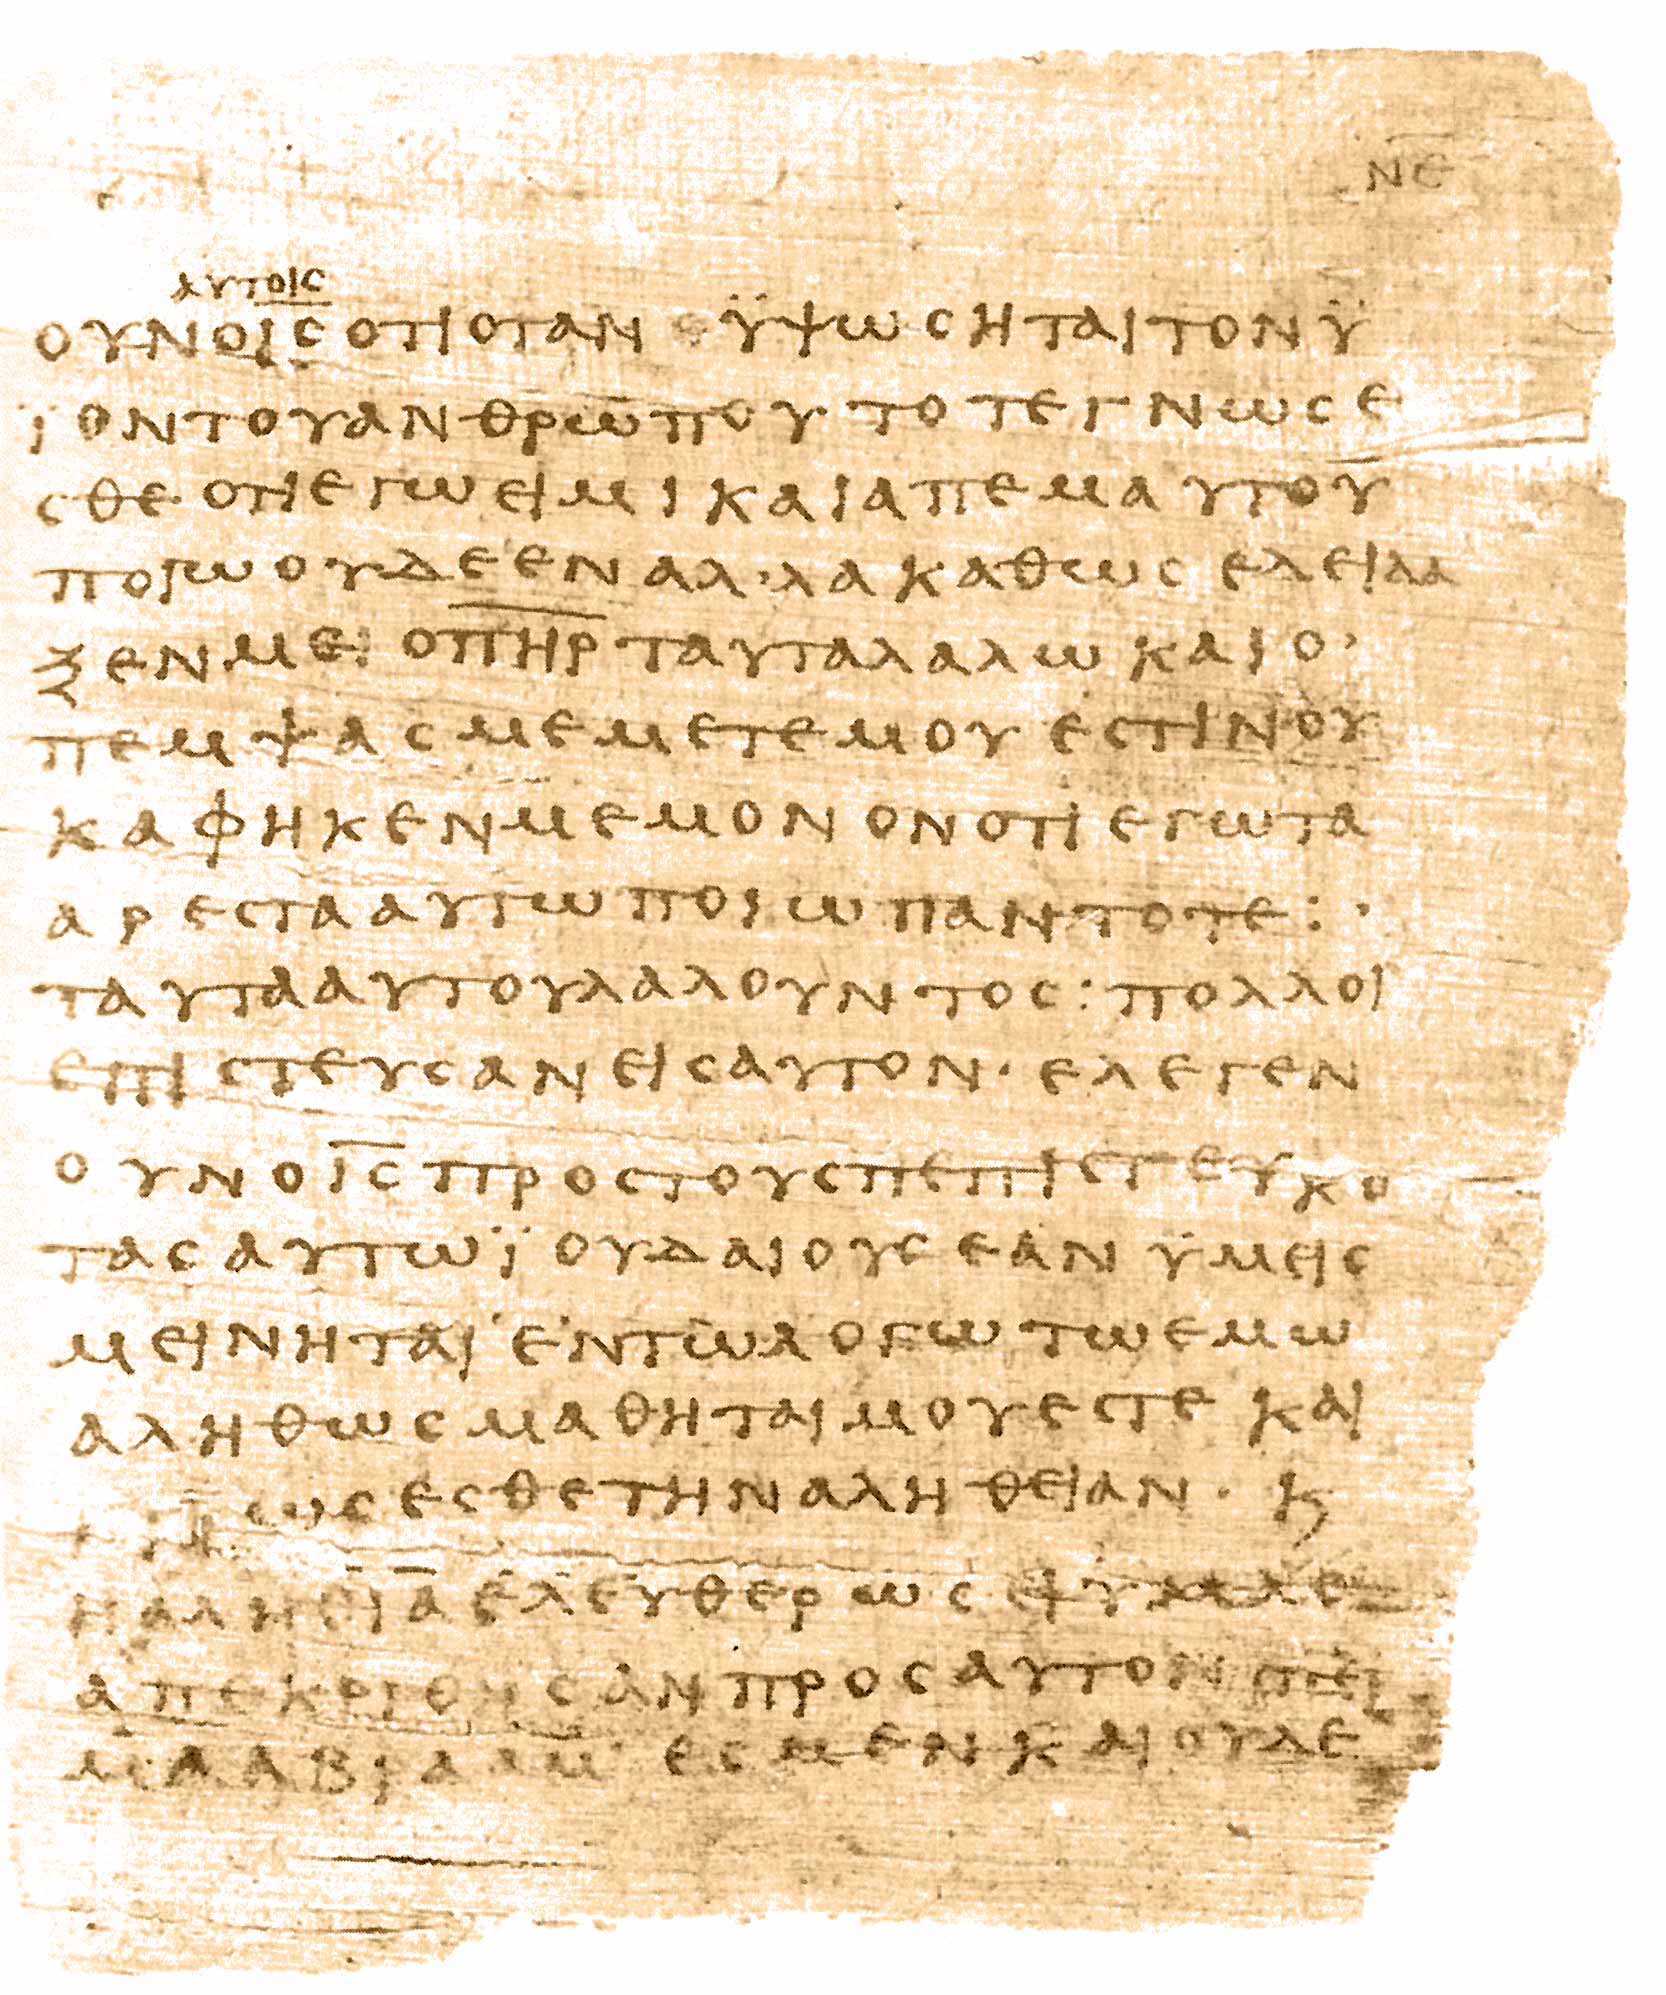 ΝΕ
ΑΥΤΟΙϹ
ΟΥΝ Ο ΙϹ ΟΤΙ ΟΤΑΝ ΫΨΩϹΗΤΑΙ ΤΟΝ Ϋ
ΪΟΝ ΤΟΥ ΑΝΘΡΩΠΟΥ ΤΟΤΕ ΓΝΩϹΕ
ϹΘΕ ΟΤΙ ΕΓΩ ΕΙΜΙ ΚΑΙ ΑΠ ΕΜΑΥΤΟΥ
ΠΟΙΩ ΟΥΔΕ ΕΝ ΑΛ·ΛΑ ΚΑΘΩϹ ΕΔΕΙΔΑ
ΞΕΝ ΜΕ Ο ΠΗΡ ΤΑΥΤΑ ΛΑΛΩ ΚΑΙ Ο·
ΠΕΜΨΑϹ ΜΕ ΜΕΤ ΕΜΟΥ ΕϹΤΙΝ ΟΥ
Κ ΑΦΗΚΕΝ ΜΕ ΜΟΝΟΝ ΟΤΙ ΕΓΩ ΤΑ
ΑΡΕϹΤΑ ΑΥΤΩ ΠΟΙΩ ΠΑΝΤΟΤΕ:·
ΤΑΥΤΑ ΑΥΤΟΥ ΛΑΛΟΥΝΤΟϹ: ΠΟΛΛΟΙ
ΕΠΙϹΤΕΥϹΑΝ ΕΙϹ ΑΥΤΟΝ· ΕΛΕΓΕΝ
ΟΥΝ Ο ΙϹ ΠΡΟϹ ΤΟΥϹ ΠΕΠΙϹΤΕΥΚΟ
ΤΑϹ ΑΥΤΩ ΪΟΥΔΑΙΟΥϹ ΕΑΝ ΫΜΕΙϹ
ΜΕΙΝΗΤΑΙ ΕΝ ΤΩ ΛΟΓΩ ΤΩ ΕΜΩ
ΑΛΗΘΩϹ ΜΑΘΗΤΑΙ ΜΟΥ ΕϹΤΕ ΚΑΙ
ΩϹΕϹΘΕ ΤΗΝ ΑΛΗΘΕΙΑΝ· Κ
Η ΑΛΗΘΙΑ ΕΛΕΥΘΕΡΩϹΕΙ ΫΜΑϹ
ΑΠΕΚΡΙΘΗϹΑΝ ΠΡΟϹ ΑΥΤΟΝ ϹΠΕΡ
ΜΑ ΑΒΡΑΑΜ ΕϹΜΕΝ ΚΑΙ ΟΥΔΕ